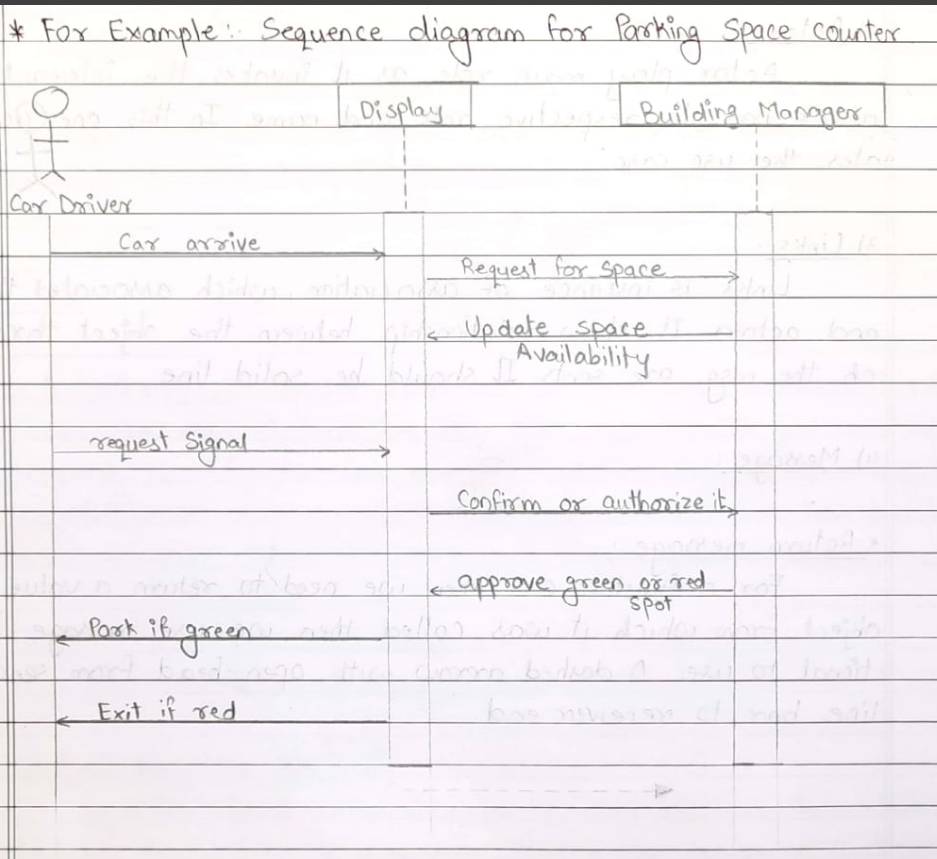 * For Example:- Sequence diagram for Parking Space counter
Display
Building Manager
Car Driver
Car arrive
Request for space
Update space
Availability
request Signal
Confirm or authorize it
approve green or red
spot
Park if green
Exit if red